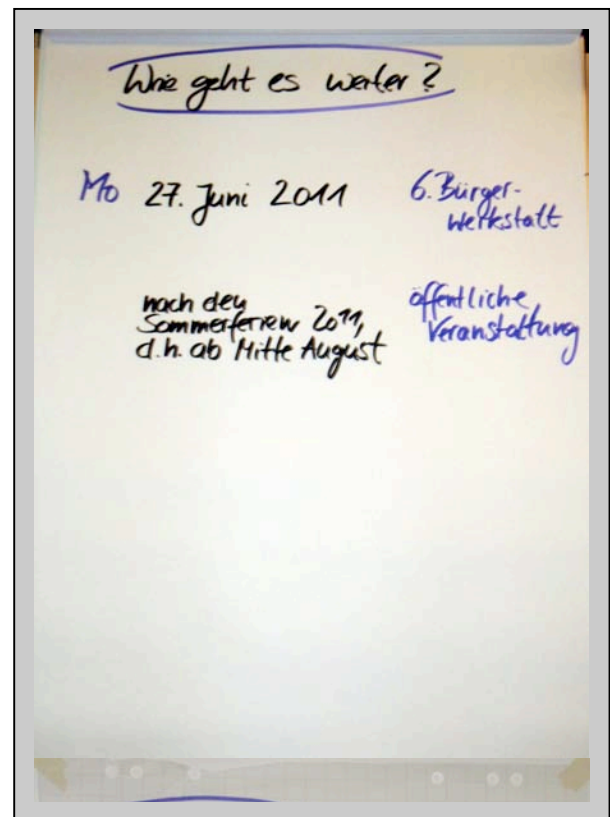 Wie geht es weiter?
Mo 27. Juni 2011 6. Bürger-
werkstatt
nach den
Sommerferien 2011,
d.h. ab Mitte August
öffentliche
Veranstaltung